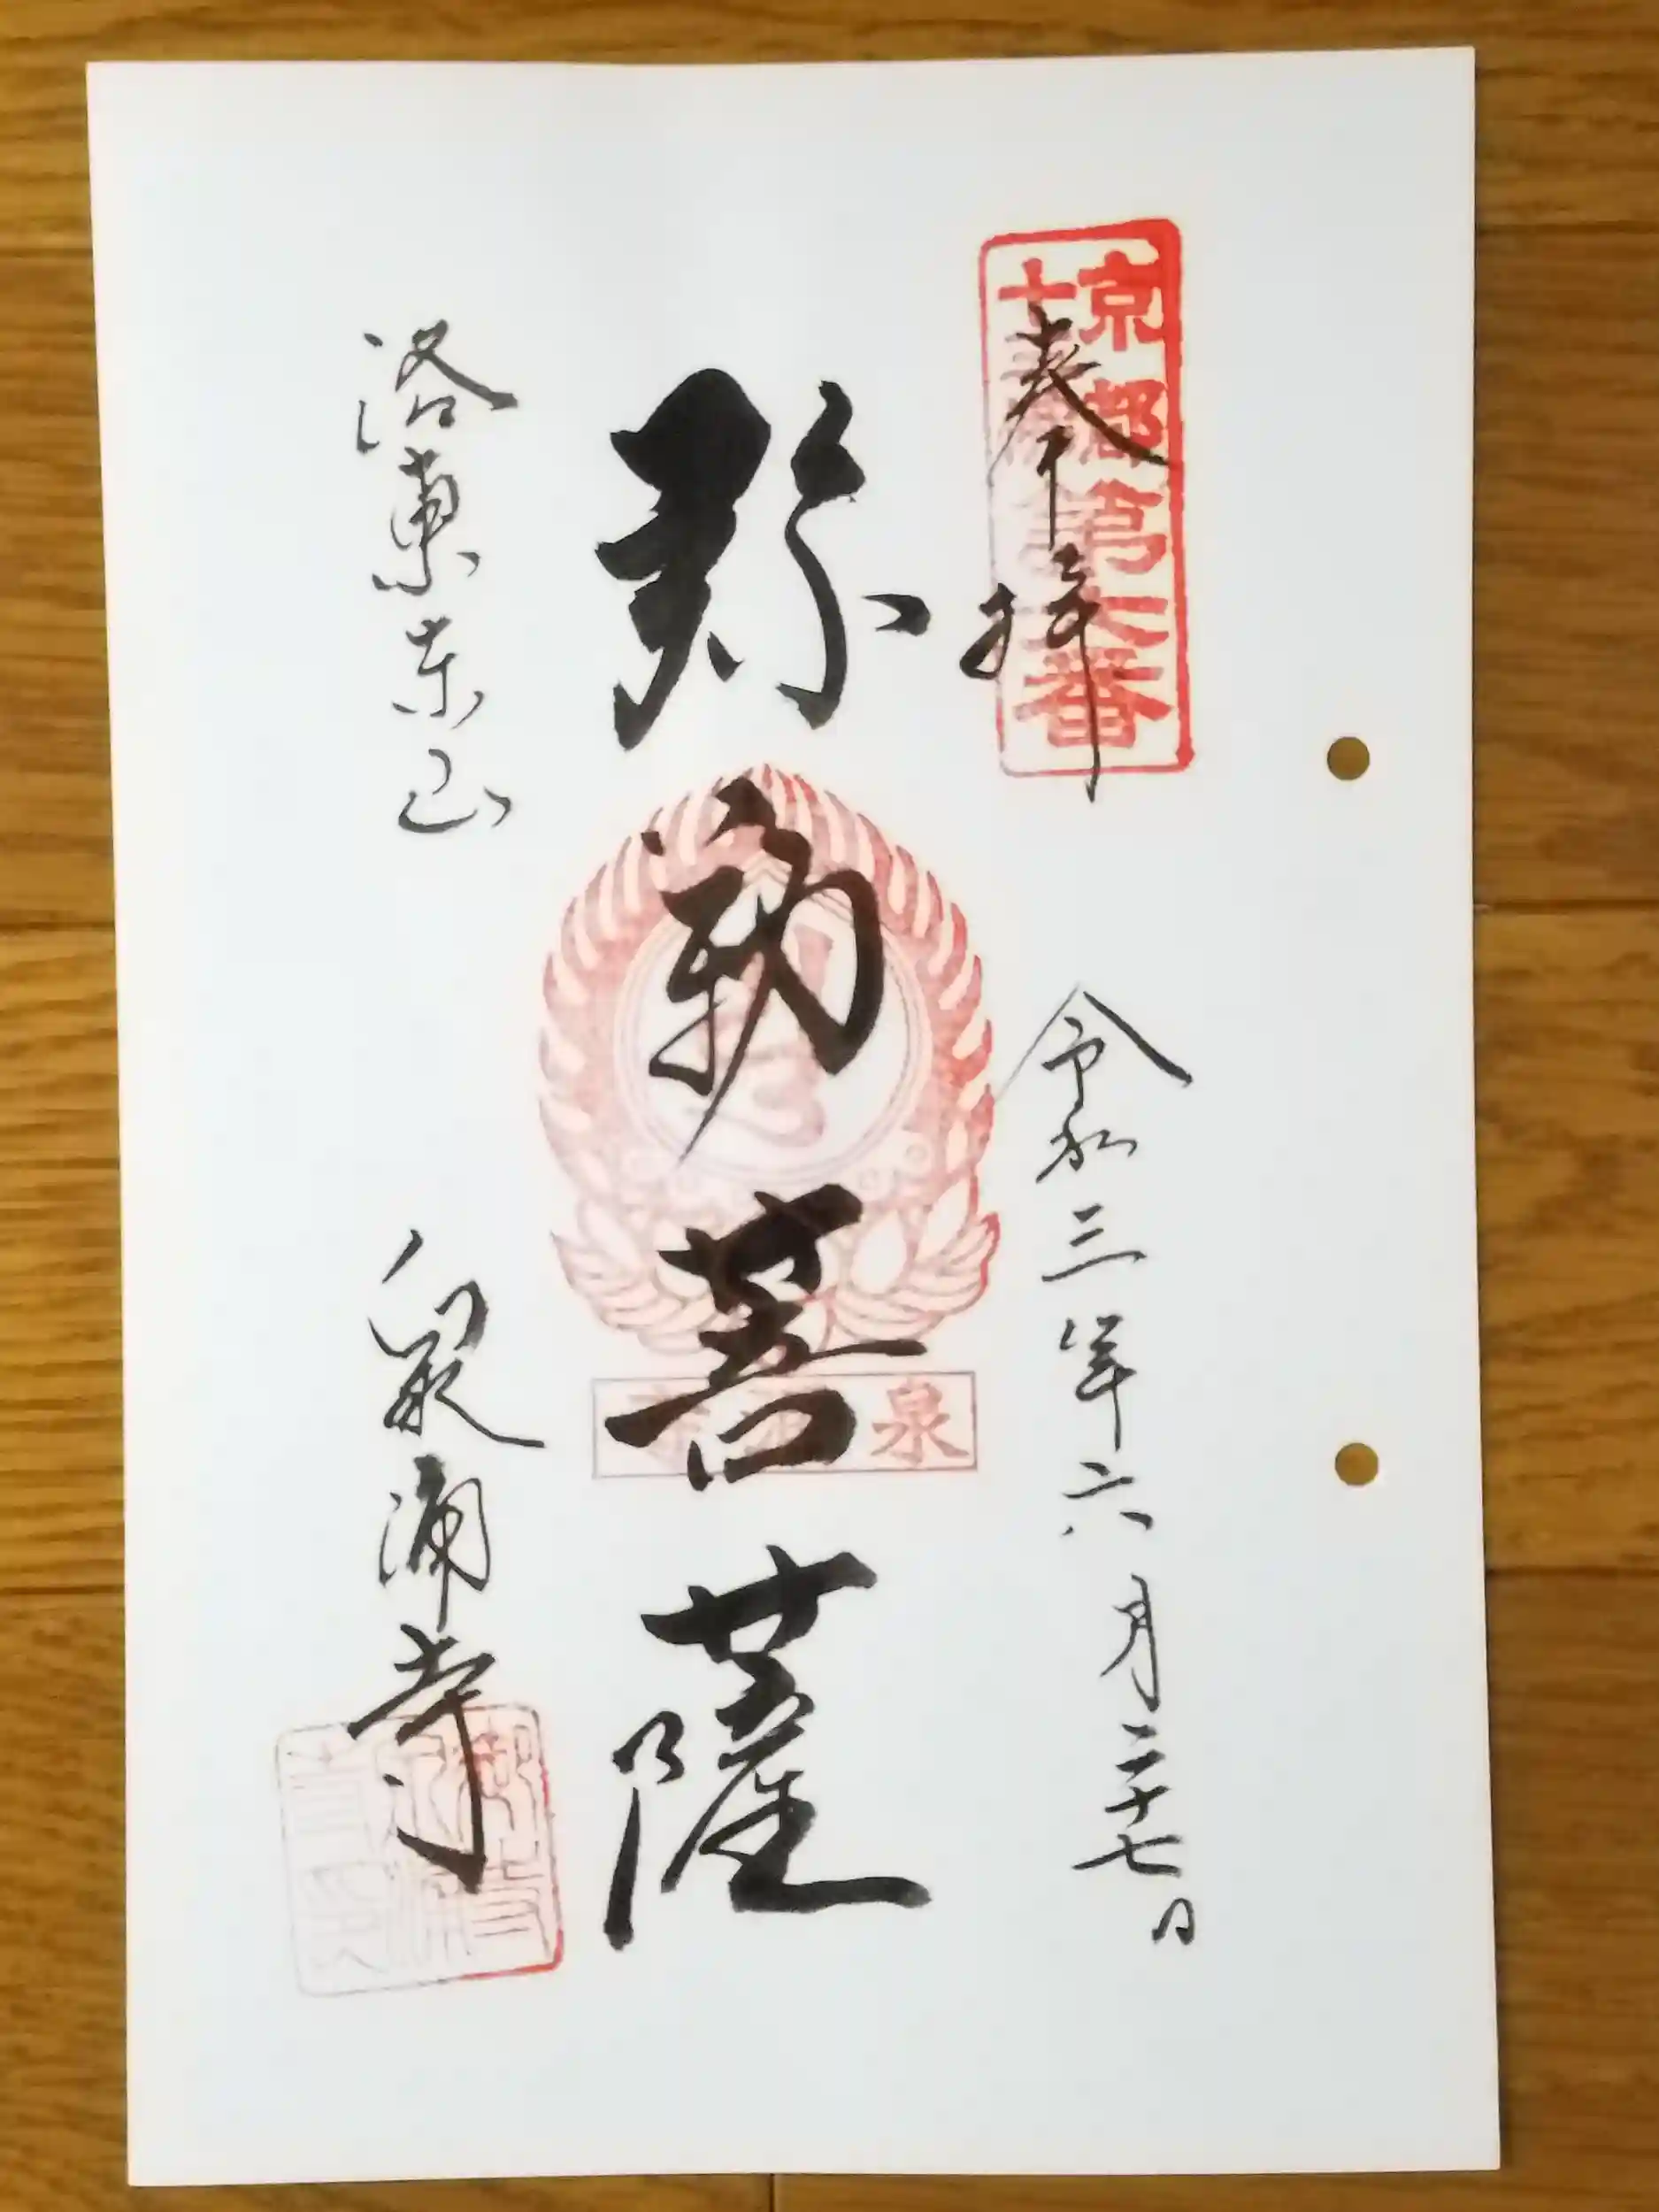 京都
十三佛
第六番
奉拝
令和三年六月二十七日
弥勒菩薩
泉涌寺
洛東東山
泉涌寺